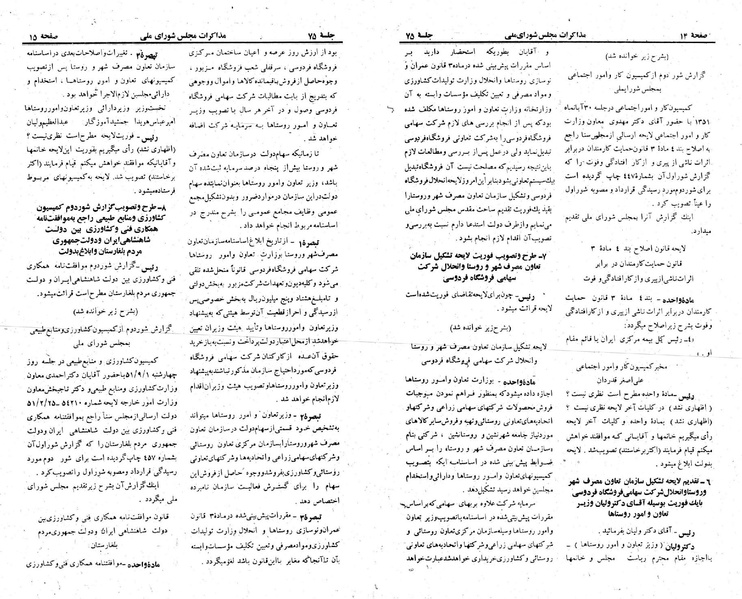 صفحه ۱۴
مذاکرات مجلس شورای ملی
جلسهٔ ۷۵
(بشرح زیر خوانده شد)
گزارش شور دوم از کمیسیون کار و امور اجتماعی
بمجلس شورایملی
کمیسیون کار و امور اجتماعی درجلسه ۳۰ آبانماه
۱۳۵۱ با حضور آقای دکتر مهدوی معاون وزارت
کار و امور اجتماعی لایحه ارسالی از مجلس سنا راجع
به اصلاح بند ۴ ماده ۳ قانون حمایت کارمندان دربرابر
اثرات ناشی از پیری و ازکار افتادگی وفوت را که
گزارش شور اول آن بشماره ۴۴۷ چاپ گردیده است
برای شور دوم مورد رسیدگی قرارداد و مصوبه شور اول
را عیناً تصویب کرد .
اینک گزارش آنرا بمجلس شورای ملی تقدیم
میدارد .
لایحه قانون اصلاح بند ۴ مادهٔ ۳
قانون حمایت کارمندان در برابر
اثرات ناشی از پیری و ازکار افتادگی و فوت
ماده واحده - بند ۴ مادهٔ ۳ قانون حمایت
کارمندان در برابر اثرات ناشی از پیری و از کار افتادگی و
فوت بشرح زیر اصلاح میگردد :
۴- رئیس کل بیمه مرکزی ایران یا قائم مقام
او .
مخبر کمیسیون کار و امور اجتماعی
علی اصغر قدردان
رئیس - ماده واحده مطرح است نظری نیست ؟
( اظهاری نشد ) در کلیات آخر لایحه نظری نیست ؟
(اظهاری نشد) بماده واحده و کلیات آخر لایحه
رأی میگیریم خانمها و آقایانی که موافقند خواهش
میکنم قیام فرمایند (اکثر برخاستند) تصویب شد . لایحه به
دولت ابلاغ میشود .
۶ - تقدیم لایحه تشکیل سازمان تعاون مصرف شهر
و روستا و انحلال شرکت سهامی فروشگاه فردوسی
با یک فوریت بوسیله آقای دکتر ولیان وزیر
تعاون و امور روستاها
رئیس - آقای دکتر ولیان بفرمائید .
دکتر ولیان ( وزیر تعاون و امور روستاها ) -
با اجازه مقام محترم ریاست مجلس و خانمها
و آقایان بطوریکه استحضار دارید بر
اساس مقررات پیش بینی شده درماده ۳ قانون عمران و
نوسازی روستاها و انحلال وزارت تولیدات کشاورزی
و مواد مصرفی و تعیین تکلیف مؤسسات وابسته به آن
وزارتخانه وزارت تعاون و امور روستاها مکلف شده
بود که پس از انجام بررسی های لازم شرکت سهامی
فروشگاه فردوسی را به شرکت تعاونی فروشگاه فردوسی
تبدیل نماید ولی در عمل پس از بررسی و مطالعات لازم
باین نتیجه رسیدیم که مصلحت نیست آن فروشگاه تبدیل
بیک سیستم تعاونی بشود بنابر این امروز لایحه انحلال فروشگاه
فردوسی و تشکیل سازمان تعاون مصرف شهر و روستا را
بقید یک فوریت تقدیم ساحت مقدس مجلس شورای ملی
می نمایم و از طرف دولت استدعا دارم نسبت به بررسی و
تصویب آن اقدام لازم انجام بشود .
۷- طرح و تصویب فوریت لایحه تشکیل سازمان
تعاون مصرف شهر و روستا و انحلال شرکت
سهامی فروشگاه فردوسی
رئیس - چون برای لایحه تقاضای فوریت شده است
لایحه قرائت میشود .
(بشرح زیر خوانده شد)
لایحه تشکیل سازمان تعاون مصرف شهر و روستا و
و انحلال شرکت سهامی فروشگاه فردوسی
ماده واحده - بوزارت تعاون و امور روستاها
اجازه داده میشود که بمنظور فراهم نمودن موجبات
فروش محصولات شرکتهای سهامی زراعی و شرکتها و
اتحادیه های تعاونی روستائی و تهیه و فروش سایر کالاهای
مورد نیاز جامعه شهرنشین و روستانشین ، شرکتی بنام
«سازمان تعاون مصرف شهر و روستا» را بر اساس
ضوابط پیش بینی شده در اساسنامه ایکه بتصویب
کمیسیونهای تعاون و امور روستاها و دارائی و استخدام
مجلسین خواهد رسید تشکیل دهد .
سرمایه شرکت علاوه بر بهای سهامی که بر اساس
مقررات پیش بینی شده در اساسنامه با تصویب وزیر تعاون
و امور روستاها وسیله سازمان مرکزی تعاون روستائی و
شرکتهای سهامی زراعی و شرکتها و اتحادیه های تعاونی
روستائی و کشاورزی خریداری خواهد شد عبارت خواهد
جلسهٔ ۷۵
مذاکرات مجلس شورای ملی
صفحه ۱۵
بود از ارزش روز عرصه و اعیان ساختمان مرکزی
فروشگاه فردوسی ، سرقفلی شعب فروشگاه مزبور ،
وجوه حاصل از فروش باقیمانده کالاها و اموال و وجوهی
که بتدریج از بابت مطالبات شرکت سهامی فروشگاه
فردوسی وصول و در آخر هر سال با تصویب وزیر
تعاون و امور روستاها به سرمایه شرکت اضافه
خواهد شد .
تا زمانیکه سهام دولت در سازمان تعاون مصرف
شهر و روستا بیش از پنجاه درصد سرمایه ثبت شده آن
باشد، وزیر تعاون و امور روستاها بعنوان نماینده سهام
دولت در این سازمان در موارد ضرور و بدون تشکیل مجمع
عمومی وظایف مجامع عمومی را بشرح مندرج در
اساسنامه مربوط انجام خواهد داد .
تبصره ۱ - از تاریخ ابلاغ اساسنامه سازمان تعاون
مصرف شهر و روستا بوزارت تعاون و امور روستاها
شرکت سهامی فروشگاه فردوسی قانوناً منحل شده تلقی
می شود و کلیه دیون و تعهدات شرکت مزبور به بخش دولتی
و تا مبلغ هشتاد و پنج میلیون ریال به بخش خصوصی پس
از رسیدگی و احراز قطعیت آن توسط هیئتی که به پیشنهاد
وزیر تعاون و امور روستاها و تأیید هیئت وزیران تعیین
خواهد شد از محل اعتبار دولت پرداخت و نسبت به باز خرید
حقوق آن عده از کارکنان شرکت سهامی فروشگاه
فردوسی که مورد احتیاج سازمان مذکور نباشند به پیشنهاد
وزیر تعاون و امور روستاها و تصویب هیئت وزیران اقدام
لازم انجام خواهد شد .
تبصره ۲ - وزیر تعاون و امور روستاها میتواند
به تشخیص خود قسمتی از سهام دولت در سازمان تعاون
مصرف شهر و روستا را به سازمان مرکزی تعاون روستائی
و شرکتهای سهامی زراعی و اتحادیه ها و شرکتهای تعاونی
روستائی و کشاورزی بفروشد و وجوه حاصل از فروش این
سهام را برای گسترش فعالیت سازمان نامبرده
اختصاص دهد .
تبصره ۳ - مقررات پیش بینی شده درماده ۳ قانون
عمران و نوسازی روستاها و انحلال وزارت تولیدات
کشاورزی و مواد مصرفی و تعیین تکلیف مؤسسات وابسته
بآن تا آنجا که مغایر با این قانون باشد لغو میگردد .
تبصره ۴ - تغییرات و اصلاحات بعدی در اساسنامه
سازمان تعاون مصرف شهر و روستا پس از تصویب
کمیسیونهای تعاون و امور روستاها، استخدام و
دارائی مجلسین لازم الاجرا خواهد بود .
نخست وزیر وزیر دارائی وزیر تعاون و امور روستاها
امیر عباس هویدا جمشید آموزگار عبدالعظیم ولیان
رئیس - فوریت لایحه مطرح است نظری نیست ؟
(اظهاری نشد) رأی میگیریم بفوریت این لایحه خانمها
و آقایانیکه موافقند خواهش میکنم قیام فرمایند (اکثر
برخاستند) تصویب شد. لایحه به کمیسیونهای مربوط
فرستاده میشود .
۸- طرح و تصویب گزارش شور دوم کمیسیون
کشاورزی و منابع طبیعی راجع به موافقت نامه
همکاری فنی و کشاورزی بین دولت
شاهنشاهی ایران و دولت جمهوری
مردم بلغارستان و ابلاغ بدولت
رئیس - گزارش شور دوم موافقت نامه همکاری
فنی و کشاورزی بین دولت شاهنشاهی ایران و دولت
جمهوری مردم بلغارستان مطرح است قرائت میشود.
(بشرح زیر خوانده شد)
گزارش شور دوم از کمیسیون کشاورزی و منابع طبیعی
به مجلس شورای ملی
کمیسیون کشاورزی و منابع طبیعی در جلسه روز
چهارشنبه ۵۱/۹/۱ با حضور آقایان دکتر احمدی معاون
وزارت کشاورزی و منابع طبیعی و دکتر تاجبخش معاون
وزارت امور خارجه لایحه شماره ۵۴۲۱۰ - ۵۱/۲/۲۵
دولت ارسالی از مجلس سنا راجع به موافقت نامه همکاری
فنی و کشاورزی بین دولت شاهنشاهی ایران و دولت
جمهوری مردم بلغارستان را که گزارش شور اول آن
به شماره ۴۵۷ چاپ گردیده است برای شور دوم مورد
رسیدگی قرارداد و مصوبه شور اول را تصویب کرد .
اینک گزارش آن بشرح زیر تقدیم مجلس شورای
ملی میگردد .
قانون موافقت نامه همکاری فنی و کشاورزی بین
دولت شاهنشاهی ایران و دولت جمهوری مردم
بلغارستان
ماده واحده - موافقت نامه همکاری فنی و کشاورزی